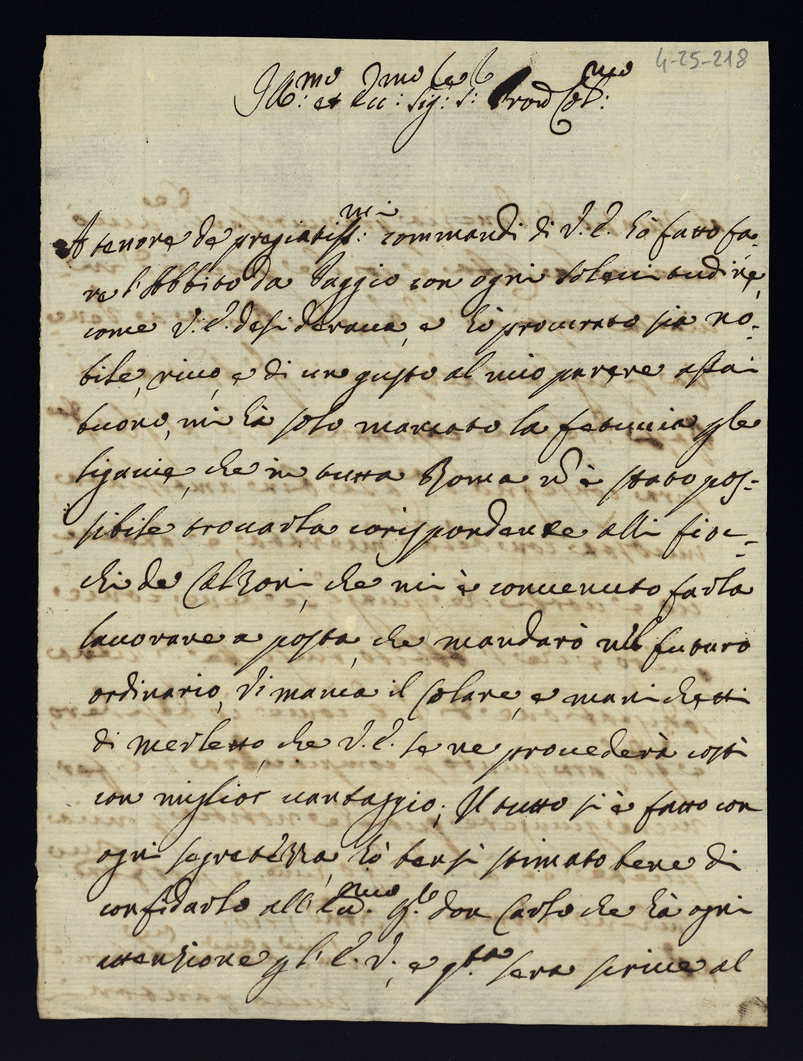 4-25-218
Ill:mo et Ecc:mo Sig: S: Pron Col:mo
A tenore de pregiatiss:mi commandi di V. E. hò fatto fa-
re l'Abbito da Paggio con ogni solecitudine,
come V. E. desiderava, e hò procurato sia no-
bile, rico, e di un gusto al mio parere assai
buono, mi hà solo mancato la fetuccia p le
ligacie, che in tutta Roma nõ è stato pos-
sibile trovarla corispondente alli fioc-
chi de Calzoni, che mi è convenuto farla
lavorare a posta, che mandarò nel futuro
ordinario, Vi manca il Colare, e manichetti
di merletto, che V. E. se ne provederà costì
con miglior vantaggio; Il tutto si è fatto con
ogni segretezza, hò bensì stimato bene di
confidarlo all'Ecc.mo Sig.re don Carlo che hà ogni
attenzione p l'E. V., e q.ta sera scrive al